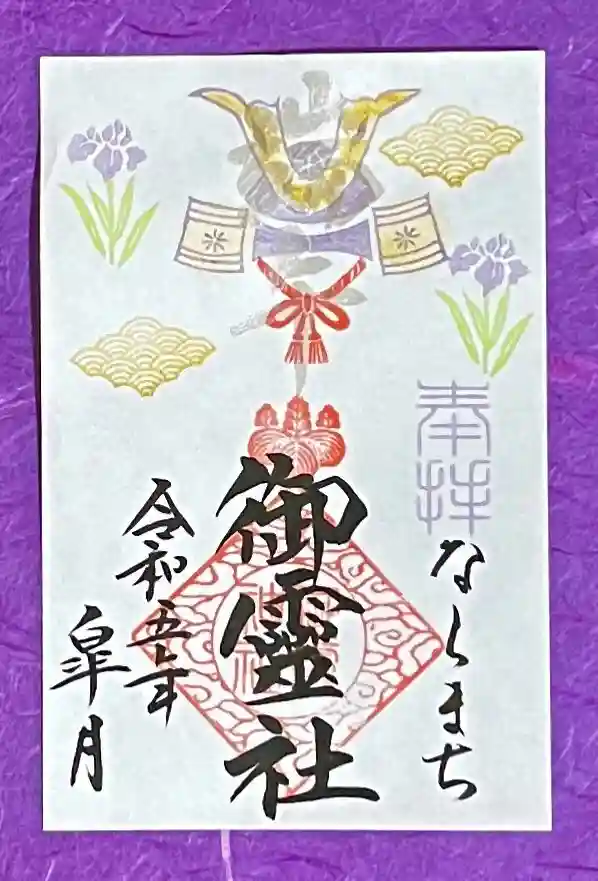 奉拝
ならまち
御靈社
令和五年
皐月